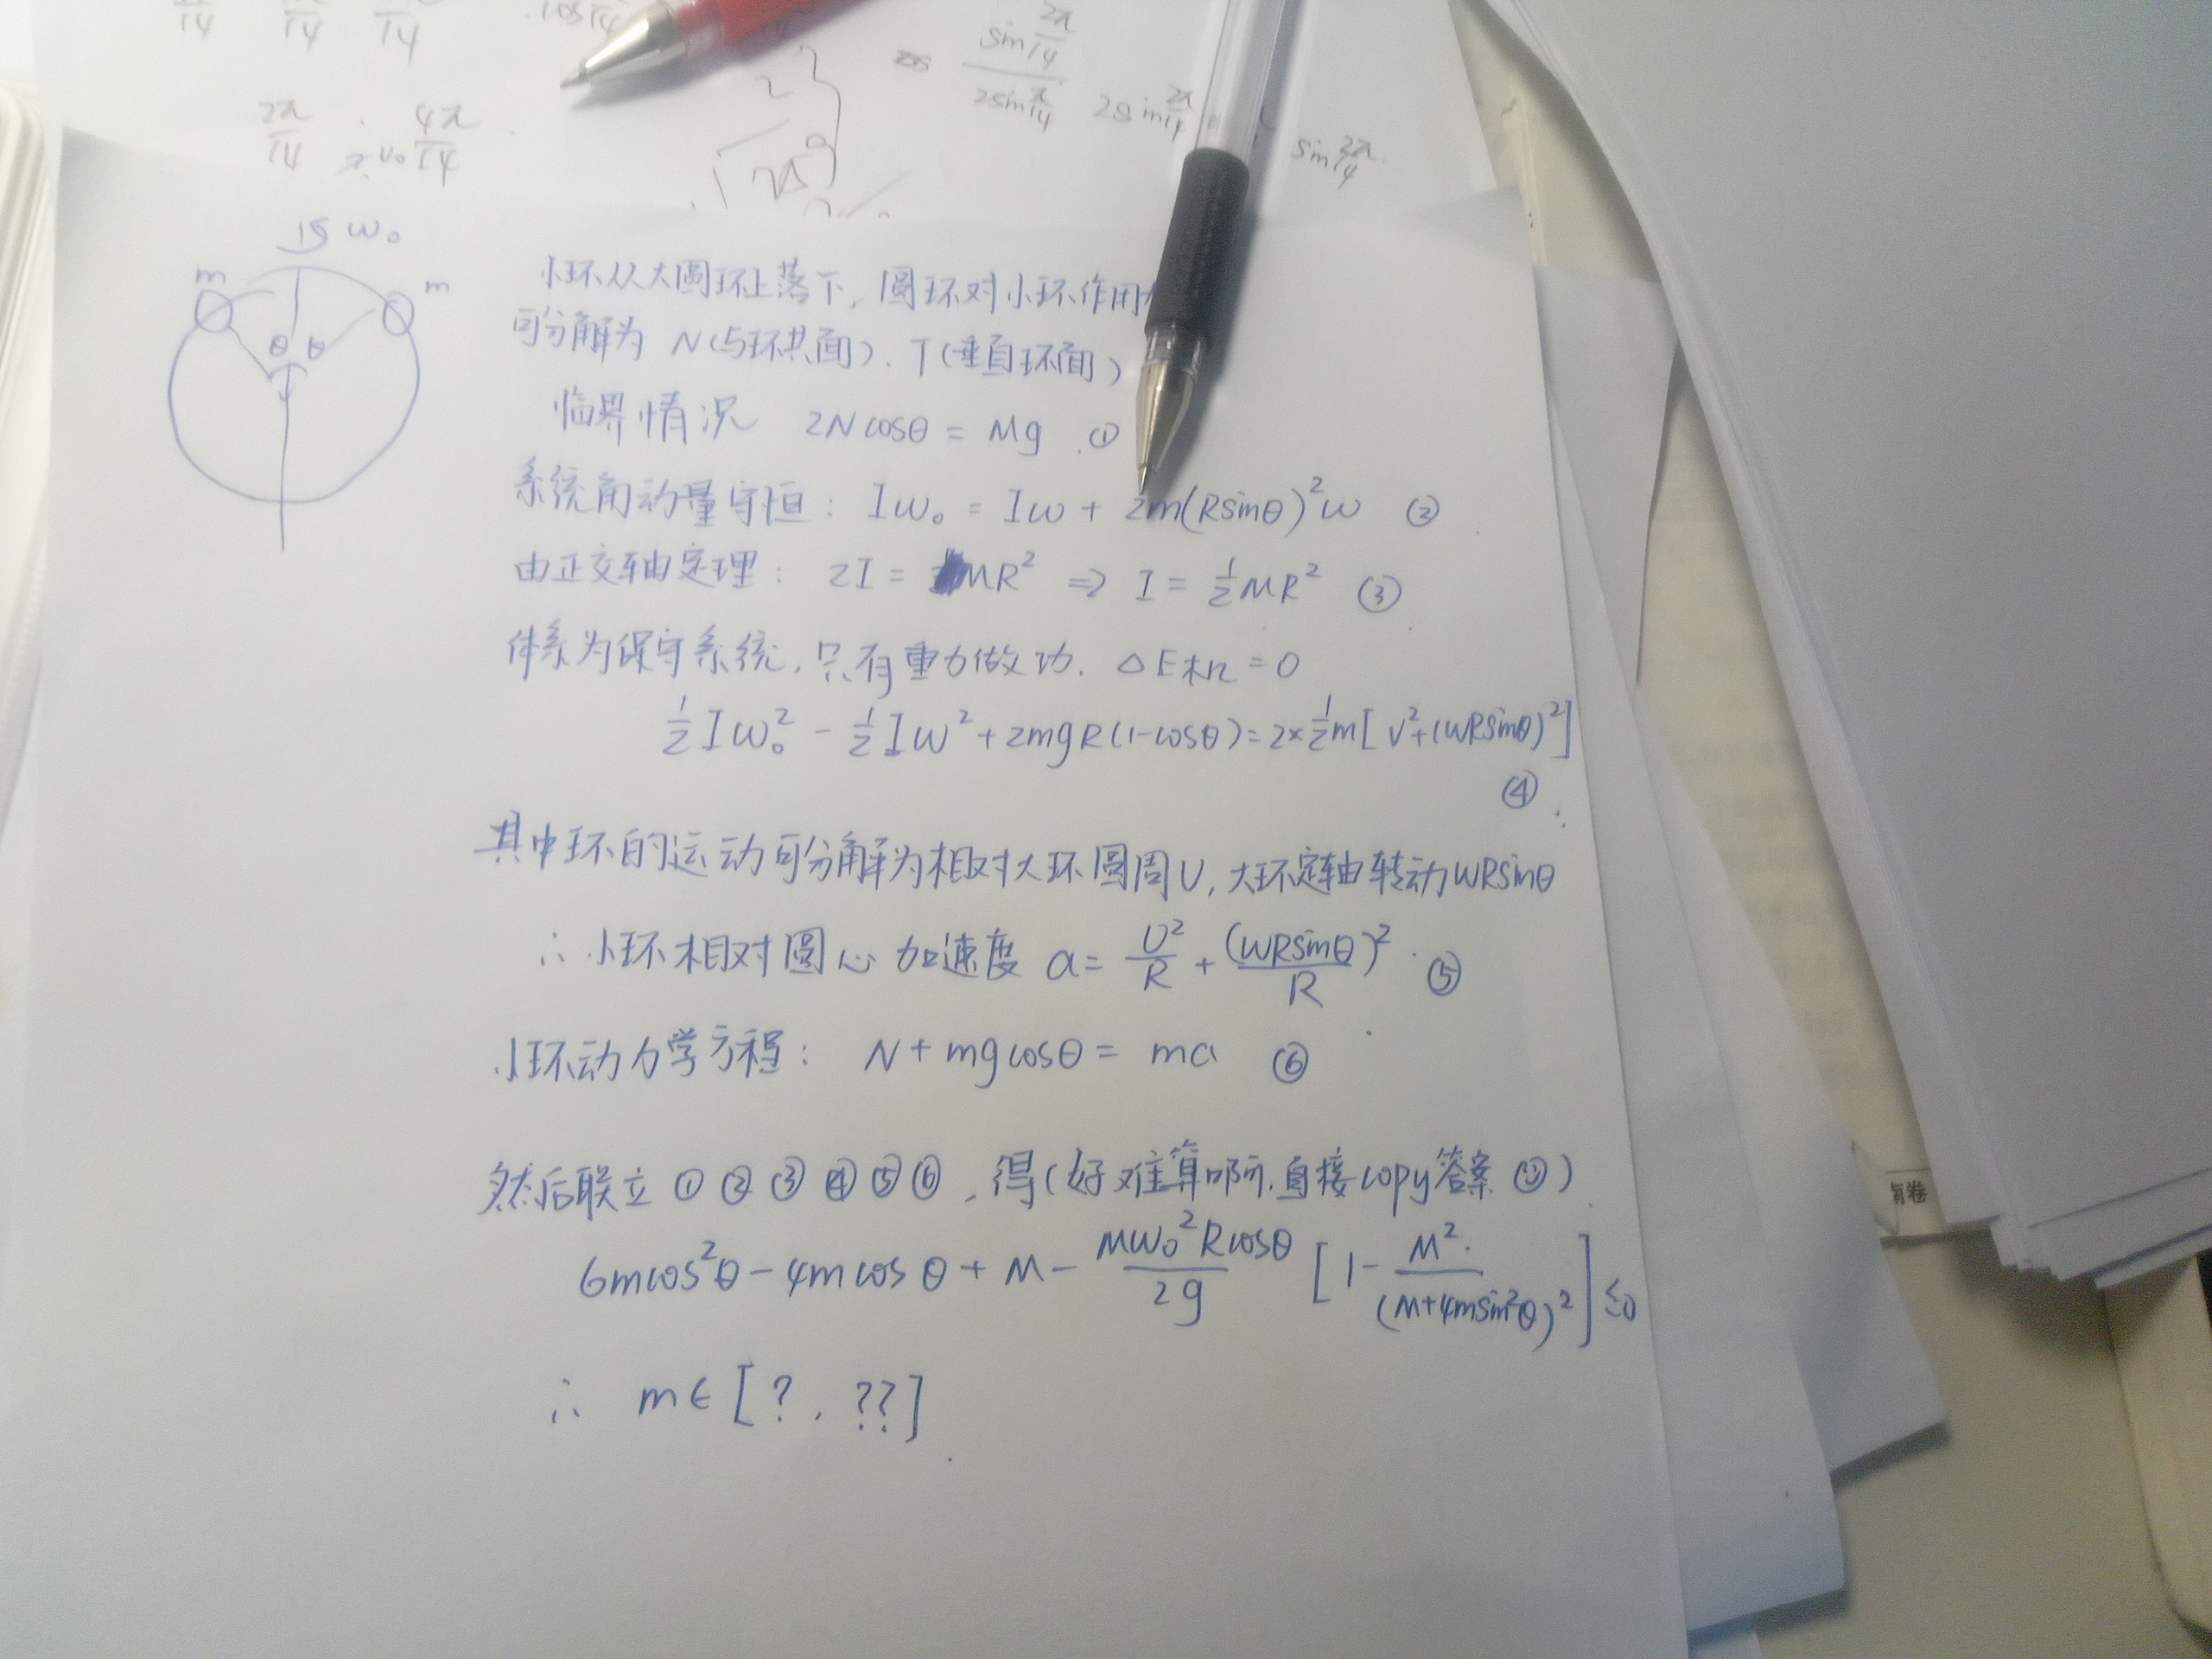 2π/14 4π/14
sin 2π/14 / 2sin π/14
sin 2π/14
ω₀
m m
θ θ
小环从大圆环上落下, 圆环对小环作用
可分解为 N(与环共面). T(垂直环面)
临界情况 2Ncosθ = Mg ①
系统角动量守恒: Iω₀ = Iω + 2m(Rsinθ)²ω ②
由正交轴定理: 2I = MR² ⇒ I = 1/2 MR² ③
体系为保守系统, 只有重力做功. △E机=0
1/2 Iω₀² - 1/2 Iω² + 2mgR(1-cosθ) = 2×1/2 m[v²+(ωRsinθ)²]
④
其中环的运动可分解为相对大环圆周υ, 大环定轴转动ωRsinθ
∴ 小环相对圆心加速度 a = υ²/R + (ωRsinθ)²/R ⑤
小环动力学方程: N + mgcosθ = ma ⑥
然后联立①②③④⑤⑥, 得(好难算啊, 直接copy答案)
6mcos²θ - 4mcosθ + M - Mω₀²Rcosθ/2g [1 - M²/(M+4msin²θ)²] ≤0
∴ m∈[?, ??]
卷